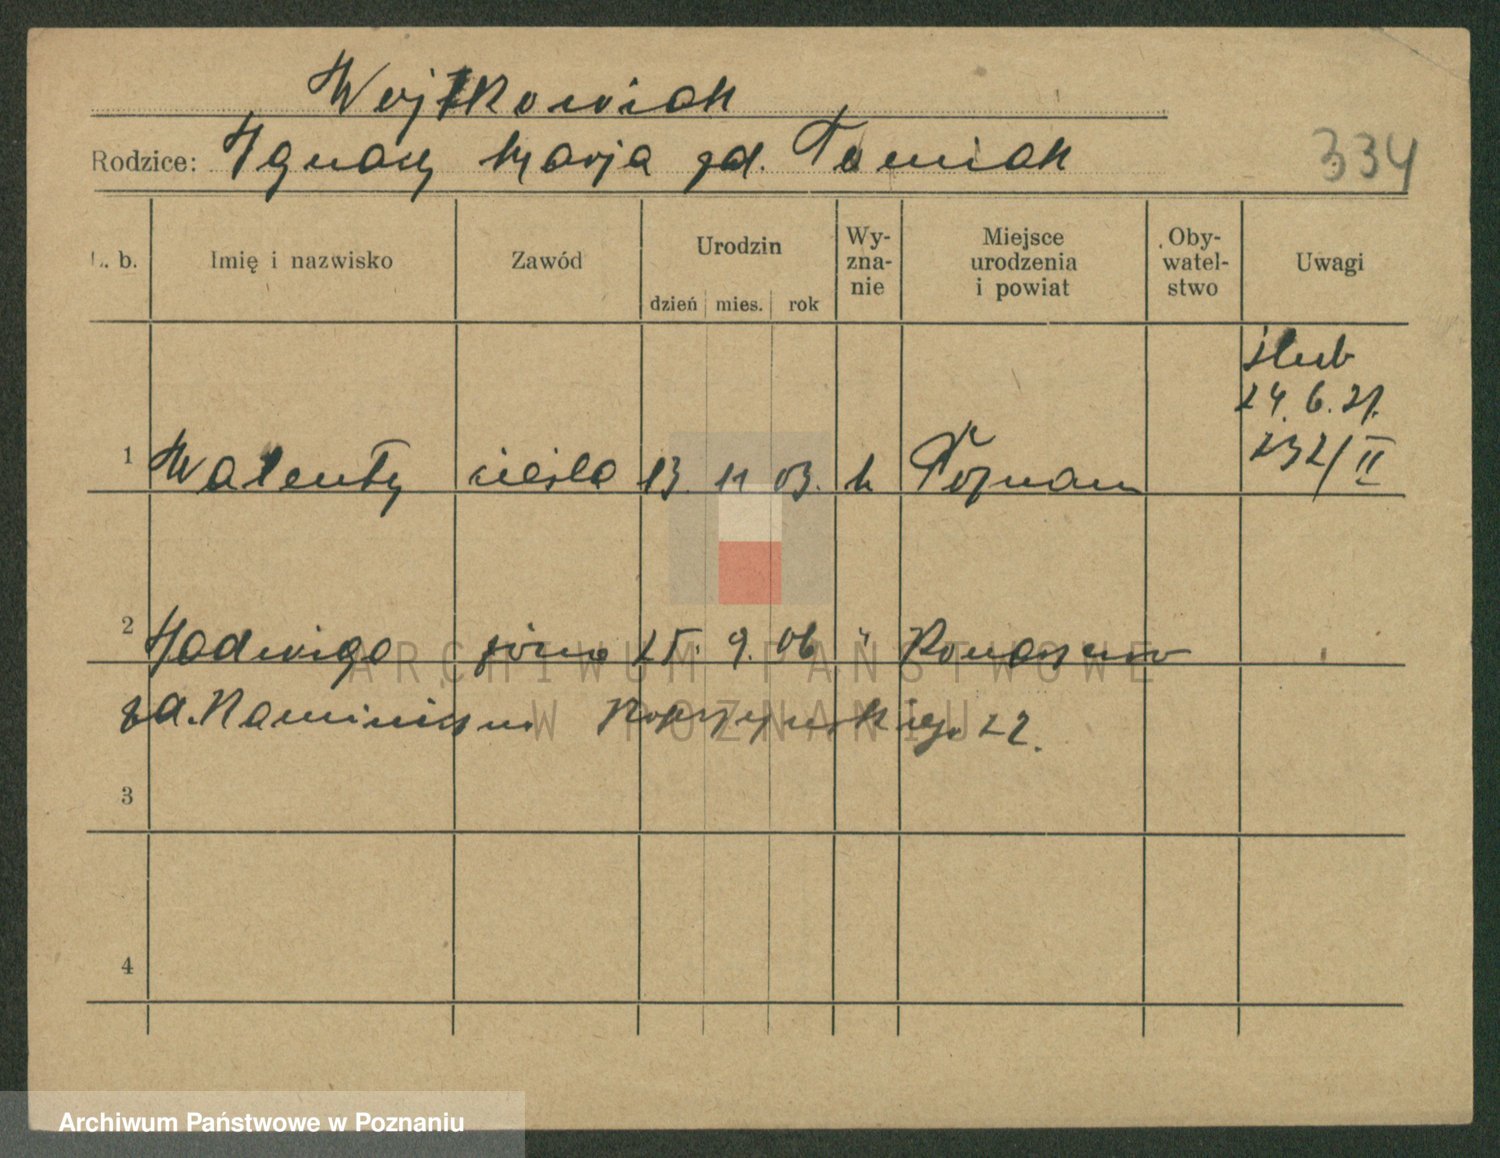 Wojtkowiak
Rodzice: Ignacy Marja zd. Tomiak
334
L. b. Imię i nazwisko Zawód Urodzin dzień mies. rok Wy-zna-nie Miejsce urodzenia i powiat Oby-watel-stwo Uwagi
ślub
24. 6. 27.
232/II
1 Walenty cieśla 13. 11 03. k Poznań
2 Jadwiga żona 25. 9. 06 "
zd. 22.
3
4
ARCHIWUM PAŃSTWOWE
W POZNANIU
Archiwum Państwowe w Poznaniu